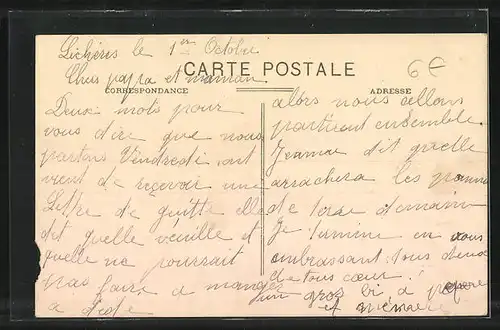 Lichères le 1er Octobre
6€
CARTE POSTALE
Chers papa et maman.
CORRESPONDANCE
ADRESSE
Deux mots pour
vous dire que nous
partons Vendredi ont
vient de reçevoir une
Lettre de elle
dit quelle veuille et
quelle ne pourrait
pas faire a manger
a
alors nous allons
partirent ensemble.
Jeanne dit quelle
arrachera les pomme
de terre demain
Je termine en vous
embrassant tous deux
de tous cœur.
un gros bi a pepere
et mémère